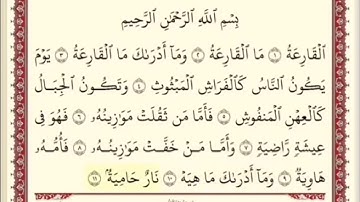 بِسْمِ اللَّهِ الرَّحْمَٰنِ الرَّحِيمِ
الْقَارِعَةُ ١ مَا الْقَارِعَةُ ٢ وَمَا أَدْرَىٰكَ مَا الْقَارِعَةُ ٣ يَوْمَ
يَكُونُ النَّاسُ كَالْفَرَاشِ الْمَبْثُوثِ ٤ وَتَكُونُ الْجِبَالُ
كَالْعِهْنِ الْمَنفُوشِ ٥ فَأَمَّا مَن ثَقُلَتْ مَوَٰزِينُهُۥ ٦ فَهُوَ فِي
عِيشَةٍ رَّاضِيَةٍ ٧ وَأَمَّا مَنْ خَفَّتْ مَوَٰزِينُهُۥ ٨ فَأُمُّهُۥ
هَاوِيَةٌ ٩ وَمَا أَدْرَىٰكَ مَا هِيَهْ ١٠ نَارٌ حَامِيَةٌ ١١